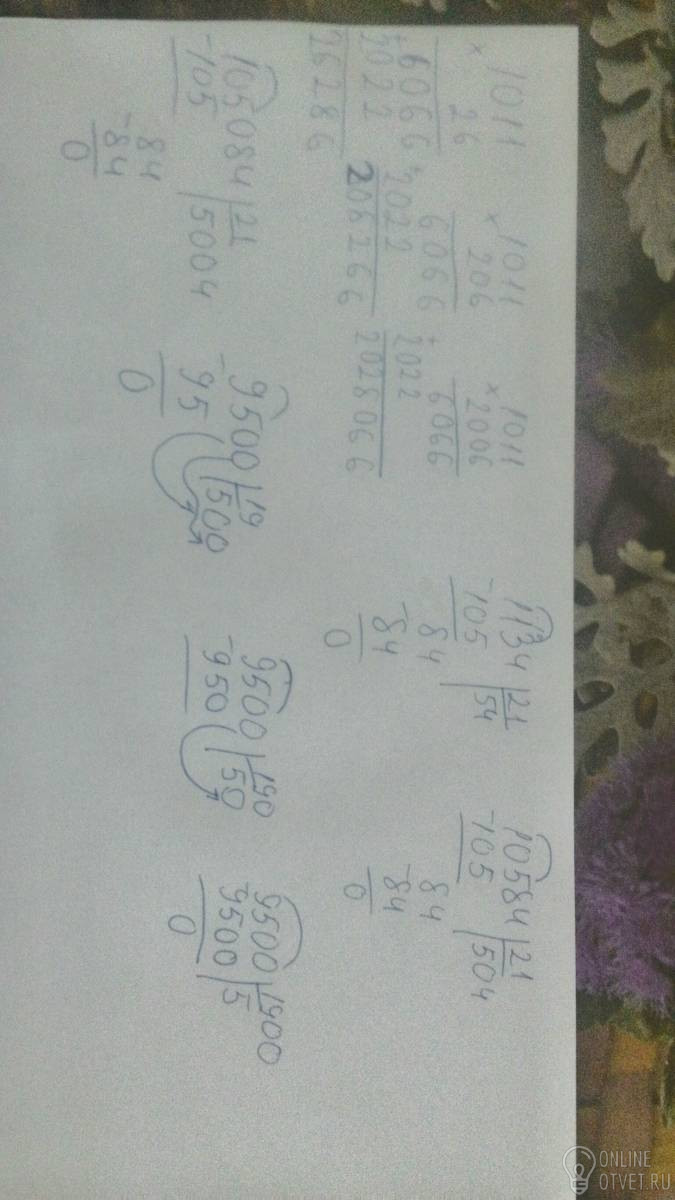 1011
× 26
6066
+2022
26286
1011
× 206
6066
+2022
206266
1011
×2006
6066
+2022
2028066
1134 | 21
-105 | 54
84
-84
0
10584 | 21
-105 | 504
84
-84
0
105084 | 21
-105 | 5004
84
-84
0
9500 | 19
-95 | 500
0
9500 | 190
-950 | 50
9500 | 1900
-9500 | 5
0
ONLINE
OTVET.RU